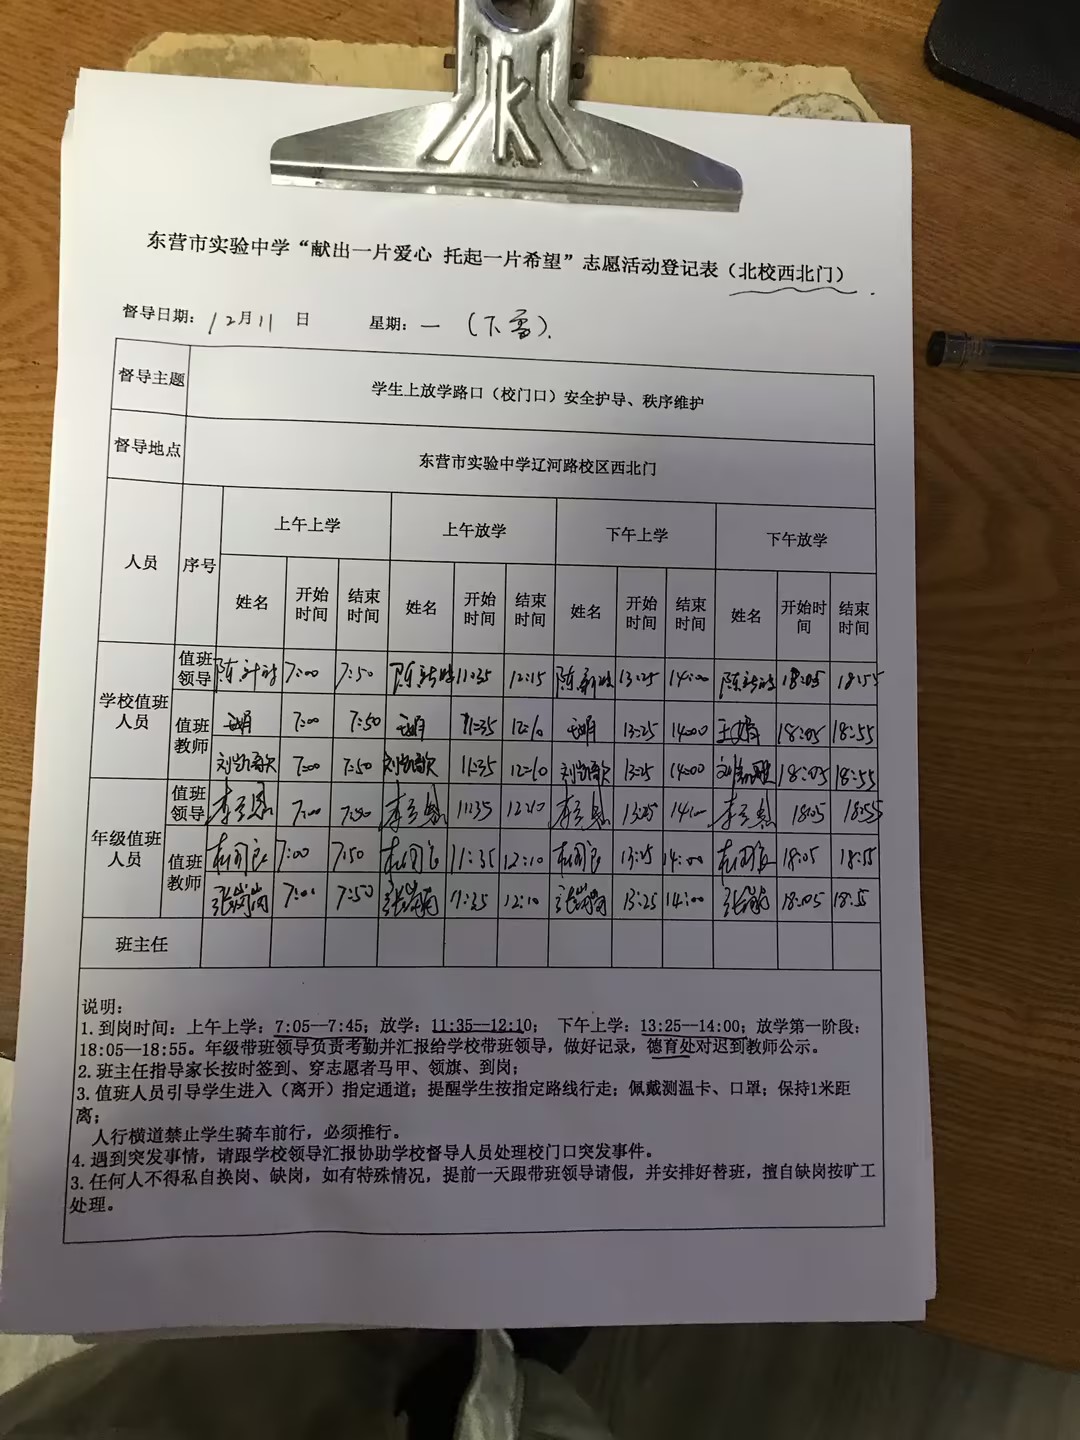 东营市实验中学“献出一片爱心 托起一片希望”志愿活动登记表（北校西北门）
督导日期：12月11日 星期：一（下雪）.
督导主题 学生上放学路口（校门口）安全护导、秩序维护
督导地点 东营市实验中学辽河路校区西北门
人员 序号 上午上学 上午放学 下午上学 下午放学
姓名 开始时间 结束时间 姓名 开始时间 结束时间 姓名 开始时间 结束时间 姓名 开始时间 结束时间
学校值班人员 值班领导 7:00 7:50 11:35 12:15 13:25 14:00 18:05 18:55
值班教师 7:00 7:50 11:35 12:10 13:25 14:00 18:05 18:55
刘凯歌 7:00 7:50 刘凯歌 11:35 12:10 刘凯歌 13:25 14:00 18:05 18:55
年级值班人员 值班领导 7:00 7:50 11:35 12:10 13:25 14:00 18:05 18:55
值班教师 7:00 7:50 11:35 12:10 13:25 14:00 18:05 18:55
7:00 7:50 11:35 12:10 13:25 14:00 18:05 18:55
班主任
说明：
1. 到岗时间：上午上学：7:05—7:45；放学：11:35—12:10； 下午上学：13:25—14:00；放学第一阶段：
18:05—18:55。年级带班领导负责考勤并汇报给学校带班领导，做好记录，德育处对迟到教师公示。
2. 班主任指导家长按时签到、穿志愿者马甲、领旗、到岗；
3. 值班人员引导学生进入（离开）指定通道；提醒学生按指定路线行走；佩戴测温卡、口罩；保持1米距
离；
人行横道禁止学生骑车前行，必须推行。
4. 遇到突发事情，请跟学校领导汇报协助学校督导人员处理校门口突发事件。
3. 任何人不得私自换岗、缺岗，如有特殊情况，提前一天跟带班领导请假，并安排好替班，擅自缺岗按旷工
处理。